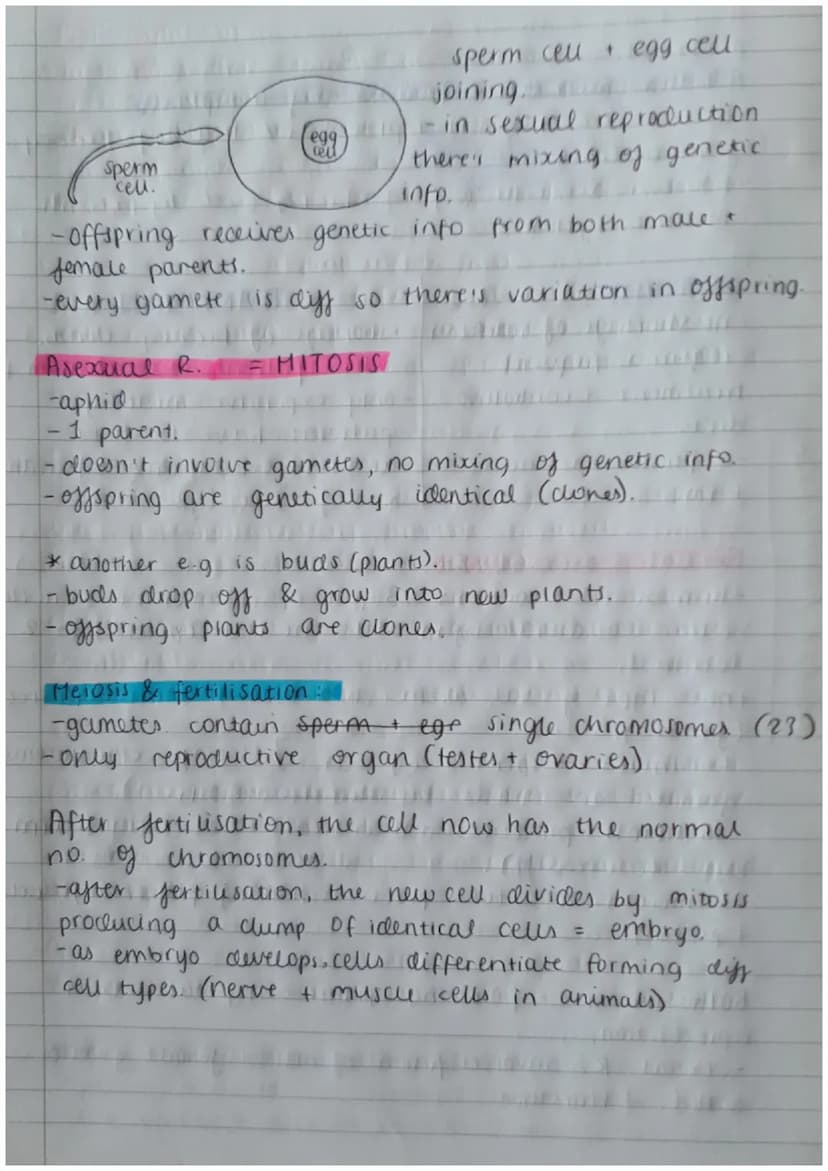 sperm cell + egg cell
joining.
- in sexual reproduction
there's mixing of genetic
info.
egg
cell
sperm
cell.
- offspring receives genetic info from both male +
female parents.
- every gamete is diff so there's variation in offspring.
Asexual R. = MITOSIS
- aphid
- 1 parent.
- doesn't involve gametes, no mixing of genetic info.
- offspring are genetically identical (clones).
* another e.g is buds (plants).
- buds drop off & grow into new plants.
- offspring plants are clones.
Meiosis & fertilisation:
- gametes contain sperm + ege single chromosomes (23)
- only reproductive organ (testes + ovaries)
After fertilisation, the cell now has the normal
no. of chromosomes.
- after fertilisation, the new cell divides by mitosis
producing a clump of identical cells = embryo.
- as embryo develops, cells differentiate forming diff
cell types. (nerve + muscle cells in animals)